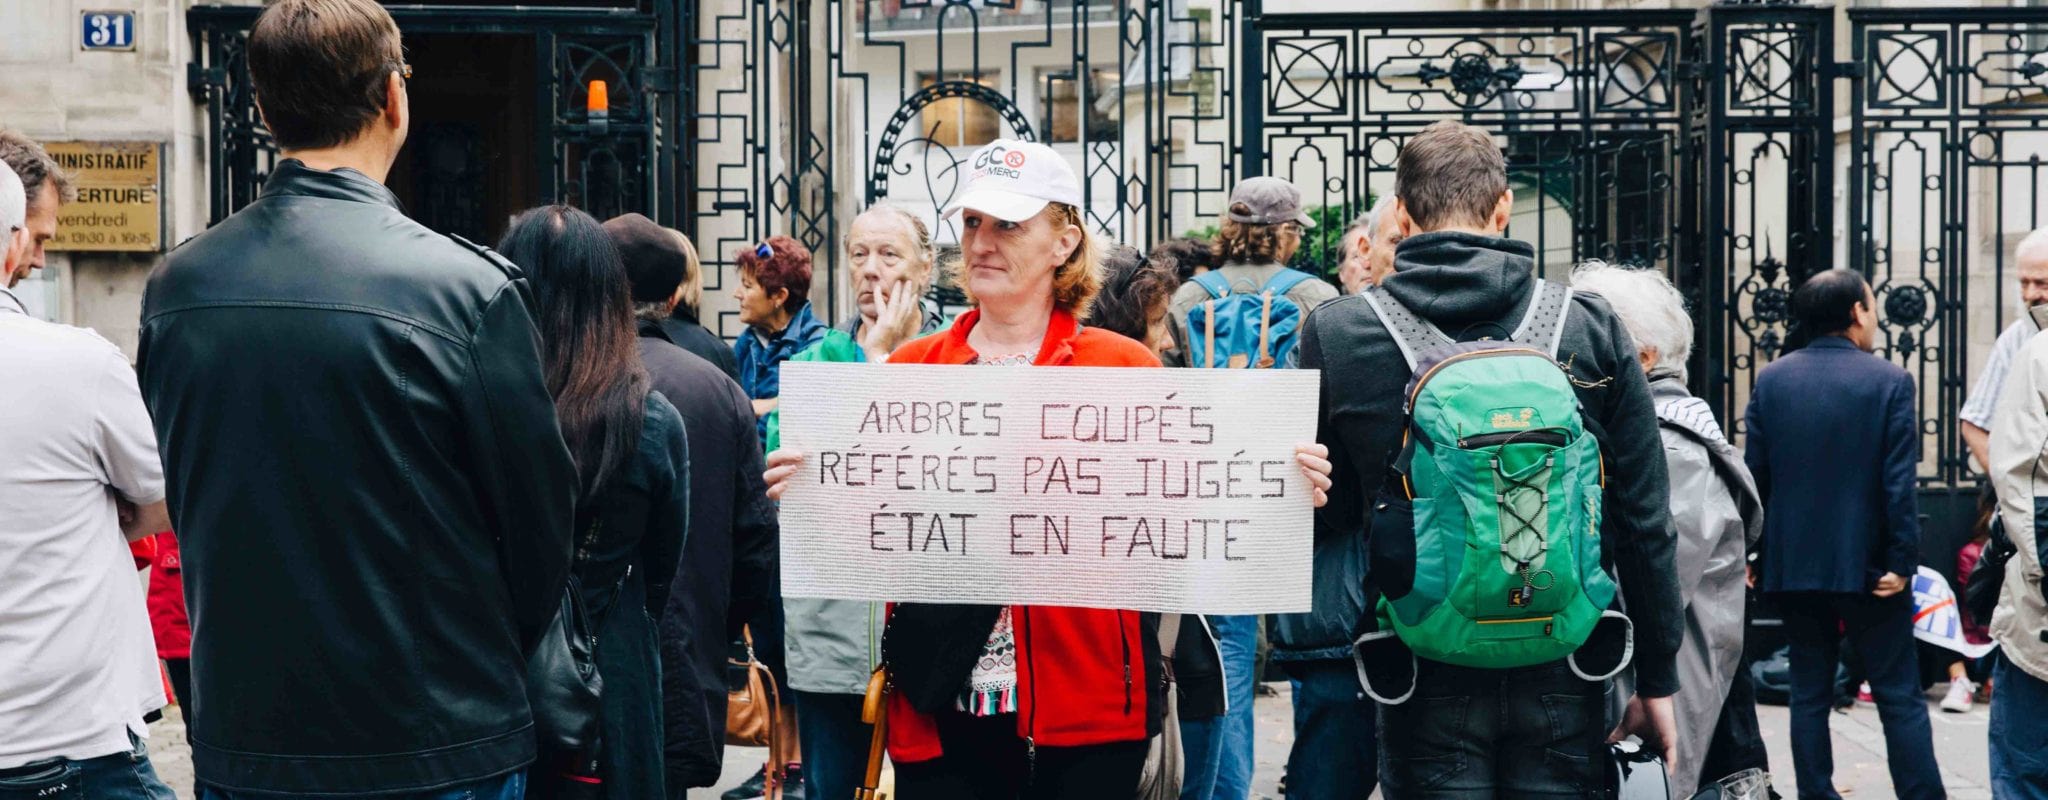 31
MINISTRATIF
ERTURE
vendredi
de 13h30 à 16h15
GCO
MERCI
ARBRES COUPÉS
RÉFÉRÉS PAS JUGÉS
ÉTAT EN FAUTE
Jack
Wolfskin